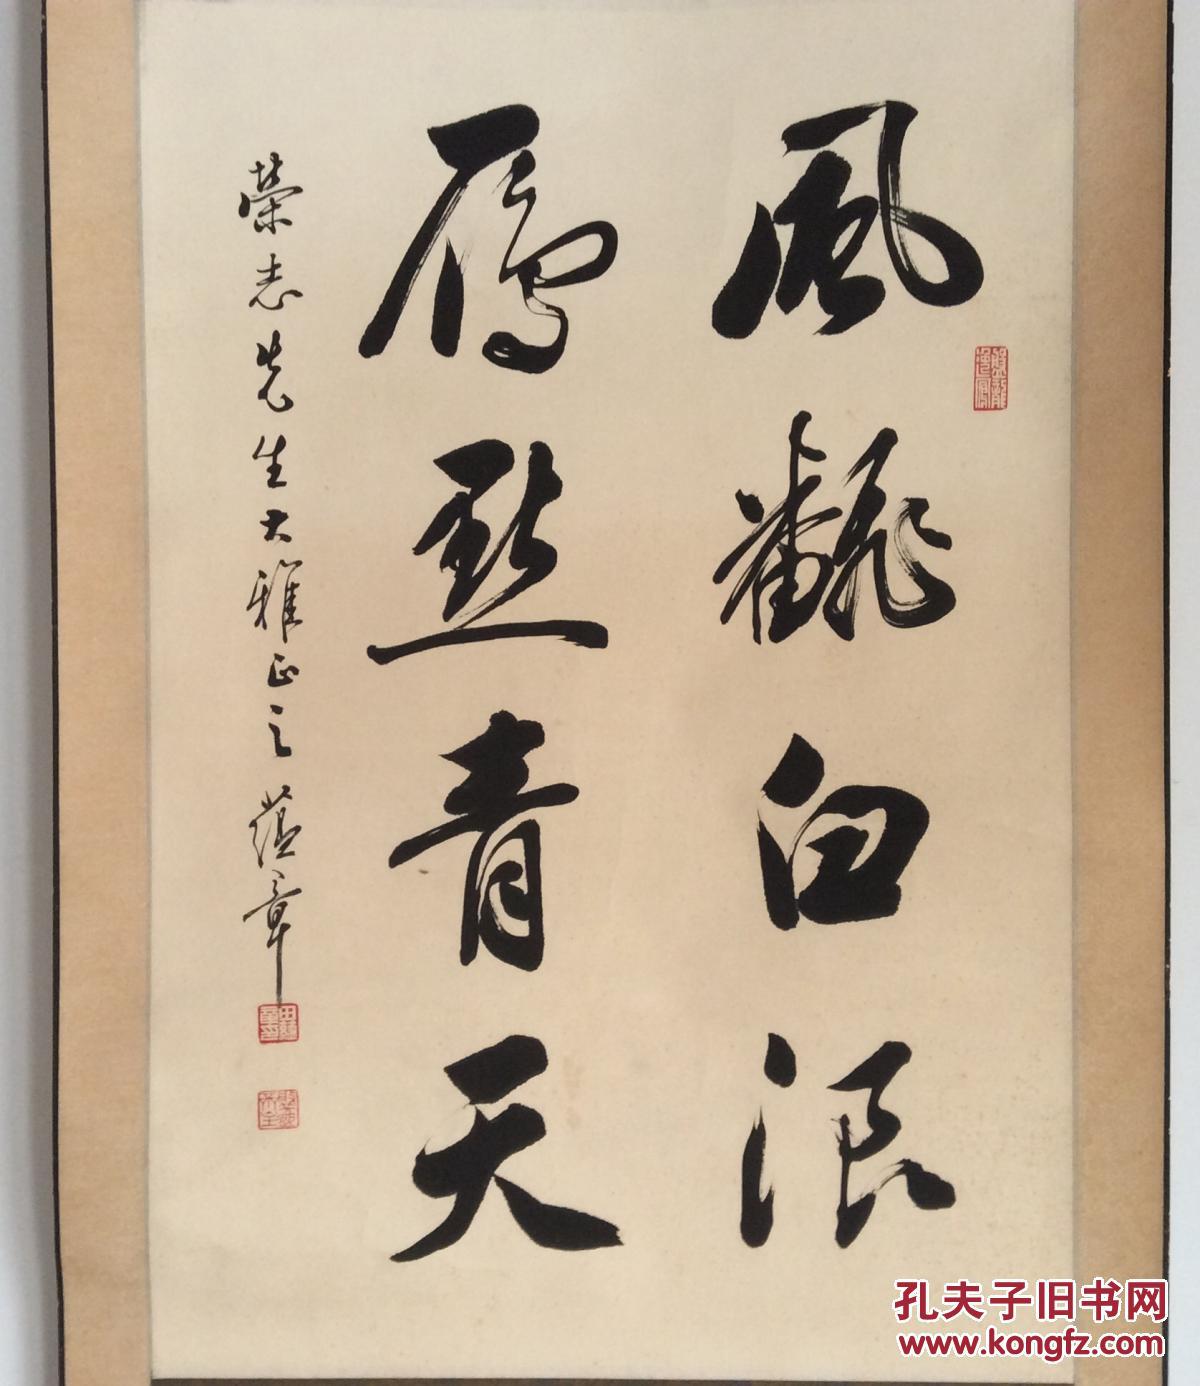 風翻白浪
雁點青天
榮志先生大雅正之 蘊章
孔夫子旧书网
www.kongfz.com